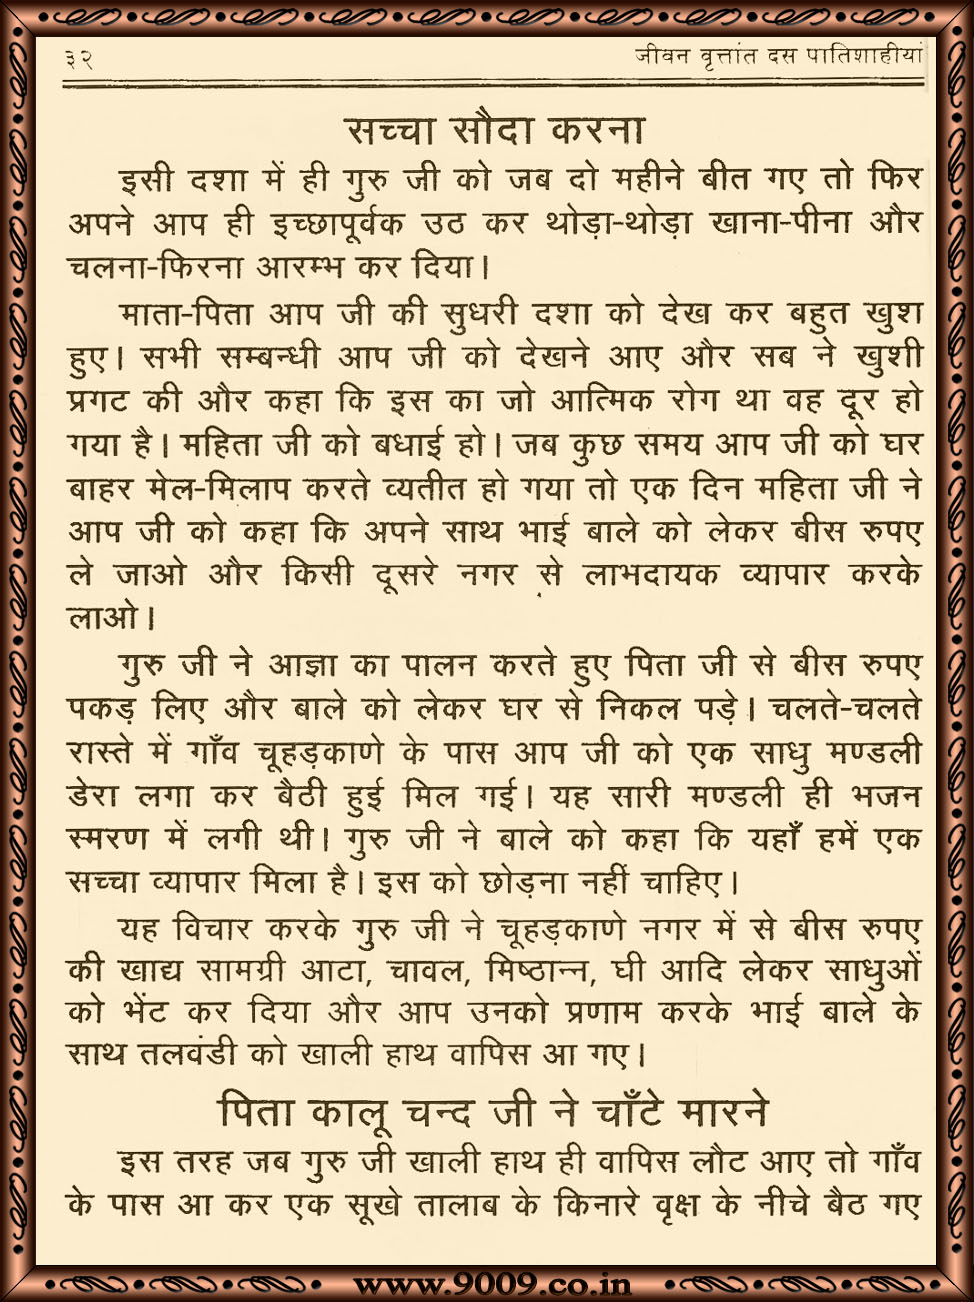 ३२ जीवन वृत्तांत दस पातिशाहीयां
सच्चा सौदा करना
इसी दशा में ही गुरु जी को जब दो महीने बीत गए तो फिर
अपने आप ही इच्छापूर्वक उठ कर थोड़ा-थोड़ा खाना-पीना और
चलना-फिरना आरम्भ कर दिया।
माता-पिता आप जी की सुधरी दशा को देख कर बहुत खुश
हुए। सभी सम्बन्धी आप जी को देखने आए और सब ने खुशी
प्रगट की और कहा कि इस का जो आत्मिक रोग था वह दूर हो
गया है। महिता जी को बधाई हो। जब कुछ समय आप जी को घर
बाहर मेल-मिलाप करते व्यतीत हो गया तो एक दिन महिता जी ने
आप जी को कहा कि अपने साथ भाई बाले को लेकर बीस रुपए
ले जाओ और किसी दूसरे नगर से लाभदायक व्यापार करके
लाओ।
गुरु जी ने आज्ञा का पालन करते हुए पिता जी से बीस रुपए
पकड़ लिए और बाले को लेकर घर से निकल पड़े। चलते-चलते
रास्ते में गाँव चूहड़काणे के पास आप जी को एक साधु मण्डली
डेरा लगा कर बैठी हुई मिल गई। यह सारी मण्डली ही भजन
स्मरण में लगी थी। गुरु जी ने बाले को कहा कि यहाँ हमें एक
सच्चा व्यापार मिला है। इस को छोड़ना नहीं चाहिए।
यह विचार करके गुरु जी ने चूहड़काणे नगर में से बीस रुपए
की खाद्य सामग्री आटा, चावल, मिष्ठान्न, घी आदि लेकर साधुओं
को भेंट कर दिया और आप उनको प्रणाम करके भाई बाले के
साथ तलवंडी को खाली हाथ वापिस आ गए।
पिता कालू चन्द जी ने चाँटे मारने
इस तरह जब गुरु जी खाली हाथ ही वापिस लौट आए तो गाँव
के पास आ कर एक सूखे तालाब के किनारे वृक्ष के नीचे बैठ गए
www.9009.co.in